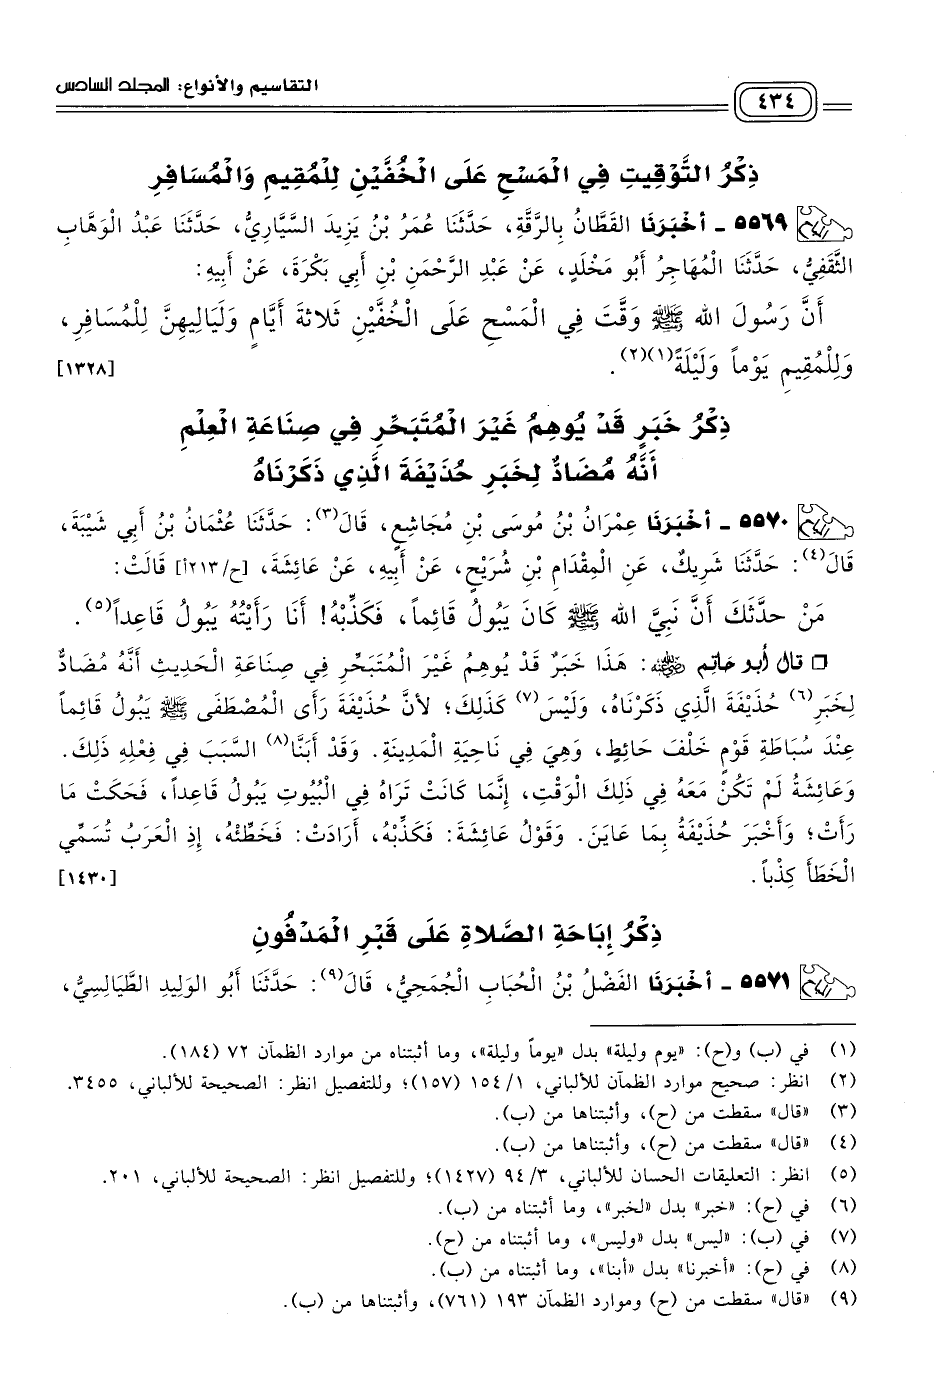 التقاسيم والأنواع: المجلد السادس
٤٣٤
ذِكْرُ التَّوْقِيتِ فِي الْمَسْحِ عَلَى الْخُفَّيْنِ لِلْمُقِيمِ وَالْمُسَافِرِ
٥٥٦٩ - أخْبَرَنَا القَطَّانُ بِالرَّقَّةِ، حَدَّثَنَا عُمَرُ بْنُ يَزِيدَ السَّيَّارِيُّ، حَدَّثَنَا عَبْدُ الْوَهَّابِ
الثَّقَفِيُّ، حَدَّثَنَا الْمُهَاجِرُ أَبُو مَخْلَدٍ، عَنْ عَبْدِ الرَّحْمَنِ بْنِ أَبِي بَكْرَةَ، عَنْ أَبِيهِ:
أَنَّ رَسُولَ الله ﷺ وَقَّتَ فِي الْمَسْحِ عَلَى الْخُفَّيْنِ ثَلاثَةَ أَيَّامٍ وَلَيَالِيهِنَّ لِلْمُسَافِرِ،
وَلِلْمُقِيمِ يَوْماً وَلَيْلَةً(١)(٢). [١٣٢٨]
ذِكْرُ خَبَرٍ قَدْ يُوهِمُ غَيْرَ الْمُتَبَحِّرِ فِي صِنَاعَةِ الْعِلْمِ
أَنَّهُ مُضَادٌّ لِخَبَرِ حُذَيْفَةَ الَّذِي ذَكَرْنَاهُ
٥٥٧٠ - أخْبَرَنَا عِمْرَانُ بْنُ مُوسَى بْنِ مُجَاشِعٍ، قَالَ(٣): حَدَّثَنَا عُثْمَانُ بْنُ أَبِي شَيْبَةَ،
قَالَ(٤): حَدَّثَنَا شَرِيكٌ، عَنِ الْمِقْدَامِ بْنِ شُرَيْحٍ، عَنْ أَبِيهِ، عَنْ عَائِشَةَ، [ح/٢١٣أ] قَالَتْ:
مَنْ حدَّثَكَ أَنَّ نَبِيَّ الله ﷺ كَانَ يَبُولُ قَائِماً، فَكَذِّبْهُ! أَنَا رَأَيْتُهُ يَبُولُ قَاعِداً(٥).
□ قال أبو حاتم رضي الله عنه: هَذَا خَبَرٌ قَدْ يُوهِمُ غَيْرَ الْمُتَبَحِّرِ فِي صِنَاعَةِ الْحَدِيثِ أَنَّهُ مُضَادٌّ
لِخَبَرِ(٦) حُذَيْفَةَ الَّذِي ذَكَرْنَاهُ، وَلَيْسَ(٧) كَذَلِكَ؛ لأنَّ حُذَيْفَةَ رَأَى الْمُصْطَفَى ﷺ يَبُولُ قَائِماً
عِنْدَ سُبَاطَةِ قَوْمٍ خَلْفَ حَائِطٍ، وَهِيَ فِي نَاحِيَةِ الْمَدِينَةِ. وَقَدْ أَبَنَّا(٨) السَّبَبَ فِي فِعْلِهِ ذَلِكَ.
وَعَائِشَةُ لَمْ تَكُنْ مَعَهُ فِي ذَلِكَ الْوَقْتِ، إِنَّمَا كَانَتْ تَرَاهُ فِي الْبُيُوتِ يَبُولُ قَاعِداً، فَحَكَتْ مَا
رَأَتْ؛ وَأَخْبَرَ حُذَيْفَةُ بِمَا عَايَنَ. وَقَوْلُ عَائِشَةَ: فَكَذِّبْهُ، أَرَادَتْ: فَخَطِّئْهُ، إِذِ الْعَرَبُ تُسَمِّي
الْخَطَأَ كِذْباً. [١٤٣٠]
ذِكْرُ إِبَاحَةِ الصَّلاةِ عَلَى قَبْرِ الْمَدْفُونِ
٥٥٧١ - أخْبَرَنَا الفَضْلُ بْنُ الْحُبَابِ الْجُمَحِيُّ، قَالَ(٩): حَدَّثَنَا أَبُو الوَلِيدِ الطَّيَالِسِيُّ،
(١) في (ب) و(ح): «يوم وليلة» بدل «يوماً وليلة»، وما أثبتناه من موارد الظمآن ٧٢ (١٨٤).
(٢) انظر: صحيح موارد الظمآن للألباني، ١/ ١٥٤ (١٥٧)؛ وللتفصيل انظر: الصحيحة للألباني، ٣٤٥٥.
(٣) «قال» سقطت من (ح)، وأثبتناها من (ب).
(٤) «قال» سقطت من (ح)، وأثبتناها من (ب).
(٥) انظر: التعليقات الحسان للألباني، ٣/ ٩٤ (١٤٢٧)؛ وللتفصيل انظر: الصحيحة للألباني، ٢٠١.
(٦) في (ح): «خبر» بدل «لخبر»، وما أثبتناه من (ب).
(٧) في (ب): «ليس» بدل «وليس»، وما أثبتناه من (ح).
(٨) في (ح): «أخبرنا» بدل «أبنا»، وما أثبتناه من (ب).
(٩) «قال» سقطت من (ح) وموارد الظمآن ١٩٣ (٧٦١)، وأثبتناها من (ب).